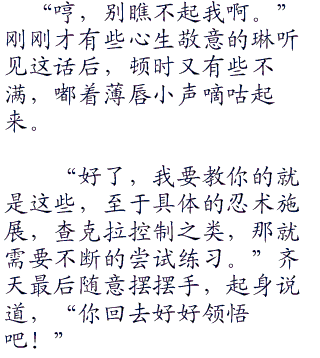 “哼，别瞧不起我啊。”
刚刚才有些心生敬意的琳听
见这话后，顿时又有些不
满，嘟着薄唇小声嘀咕起
来。
“好了，我要教你的就
是这些，至于具体的忍术施
展，查克拉控制之类，那就
需要不断的尝试练习。”齐
天最后随意摆摆手，起身说
道，“你回去好好领悟
吧！”